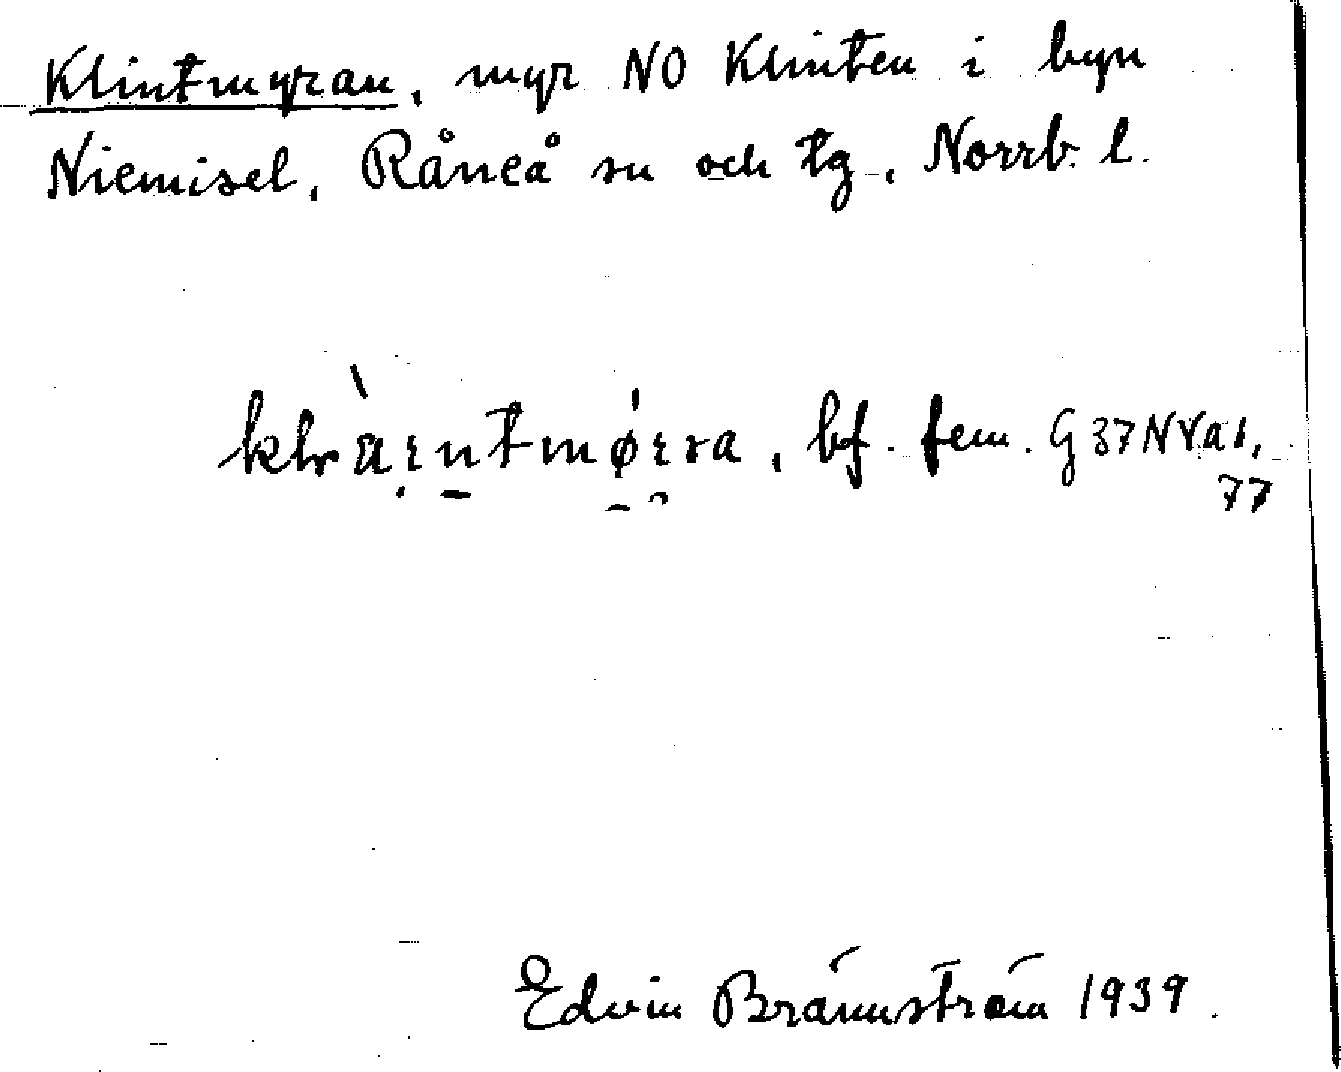 Klintmyran, myr NO Klinten i byn
Niemisel, Råneå sn och tg, Norrb. l.
bf. fem. G 37 N V a 1,
77
Edvin Brännström 1939.